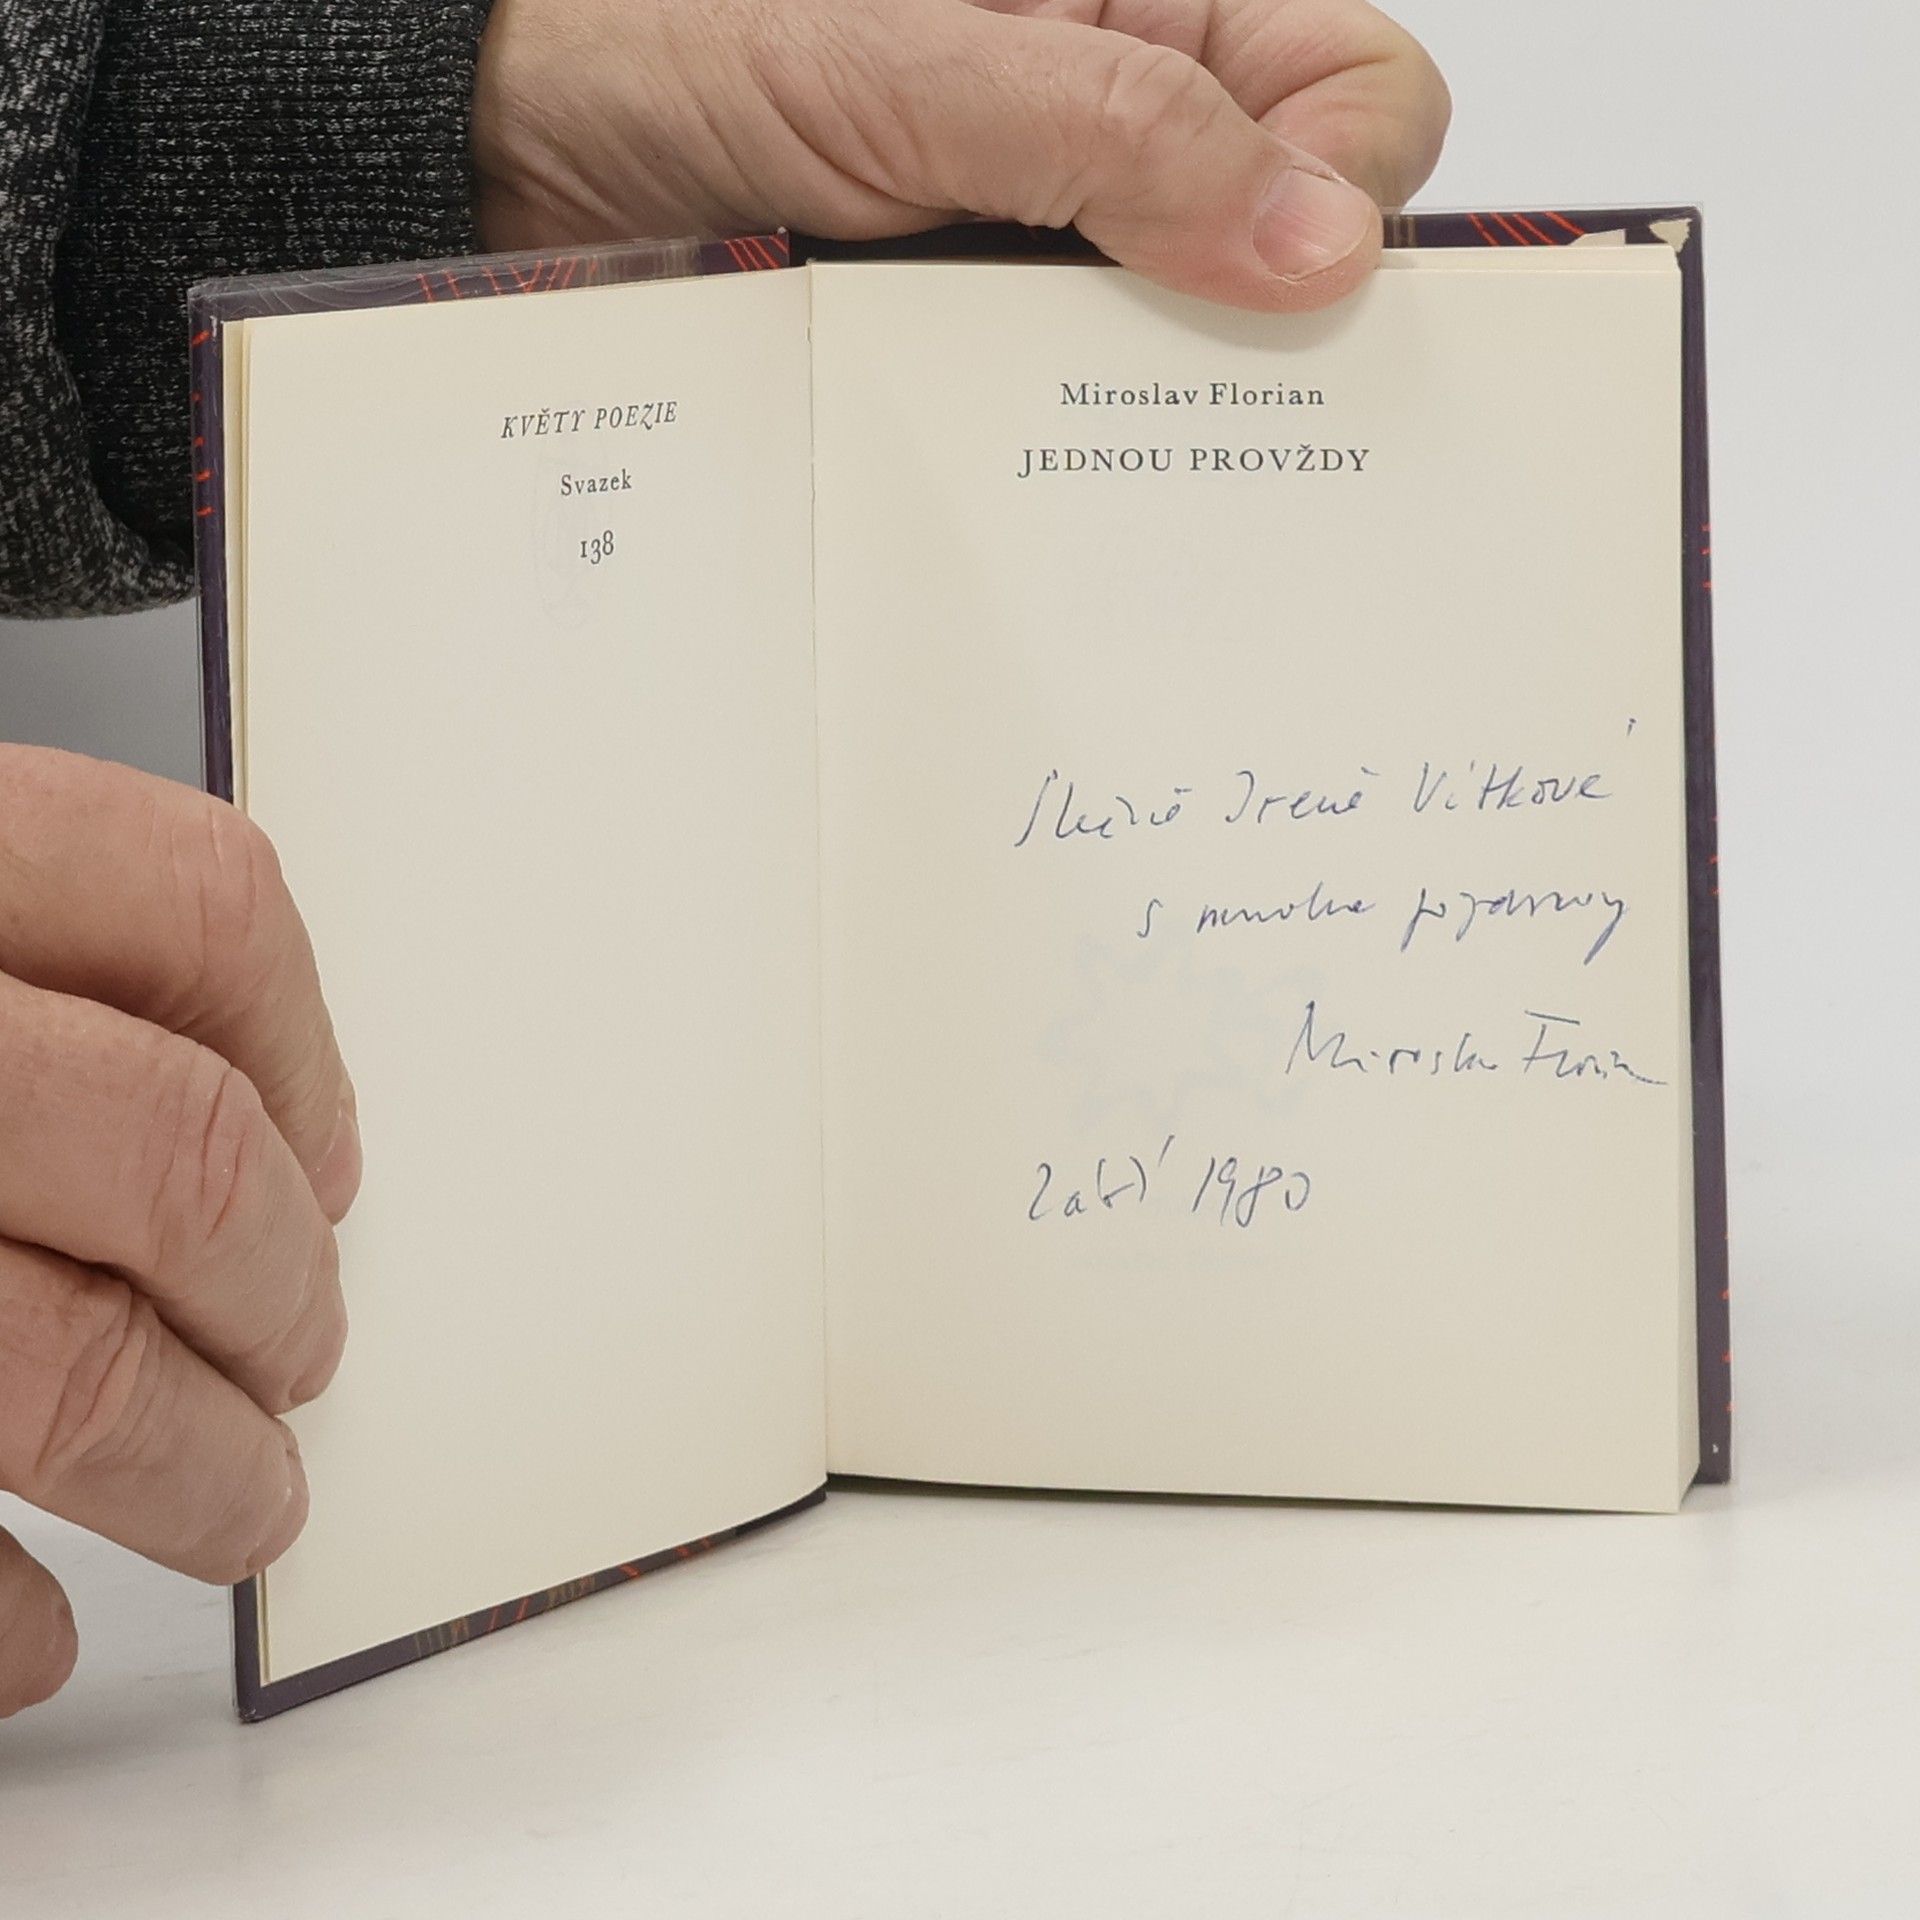 KVĚTY POEZIE
Svazek
138
Miroslav Florian
JEDNOU PROVŽDY
Slečně Ireně Vítkové
s mnoha pozdravy
Miroslav Florian
Září 1980